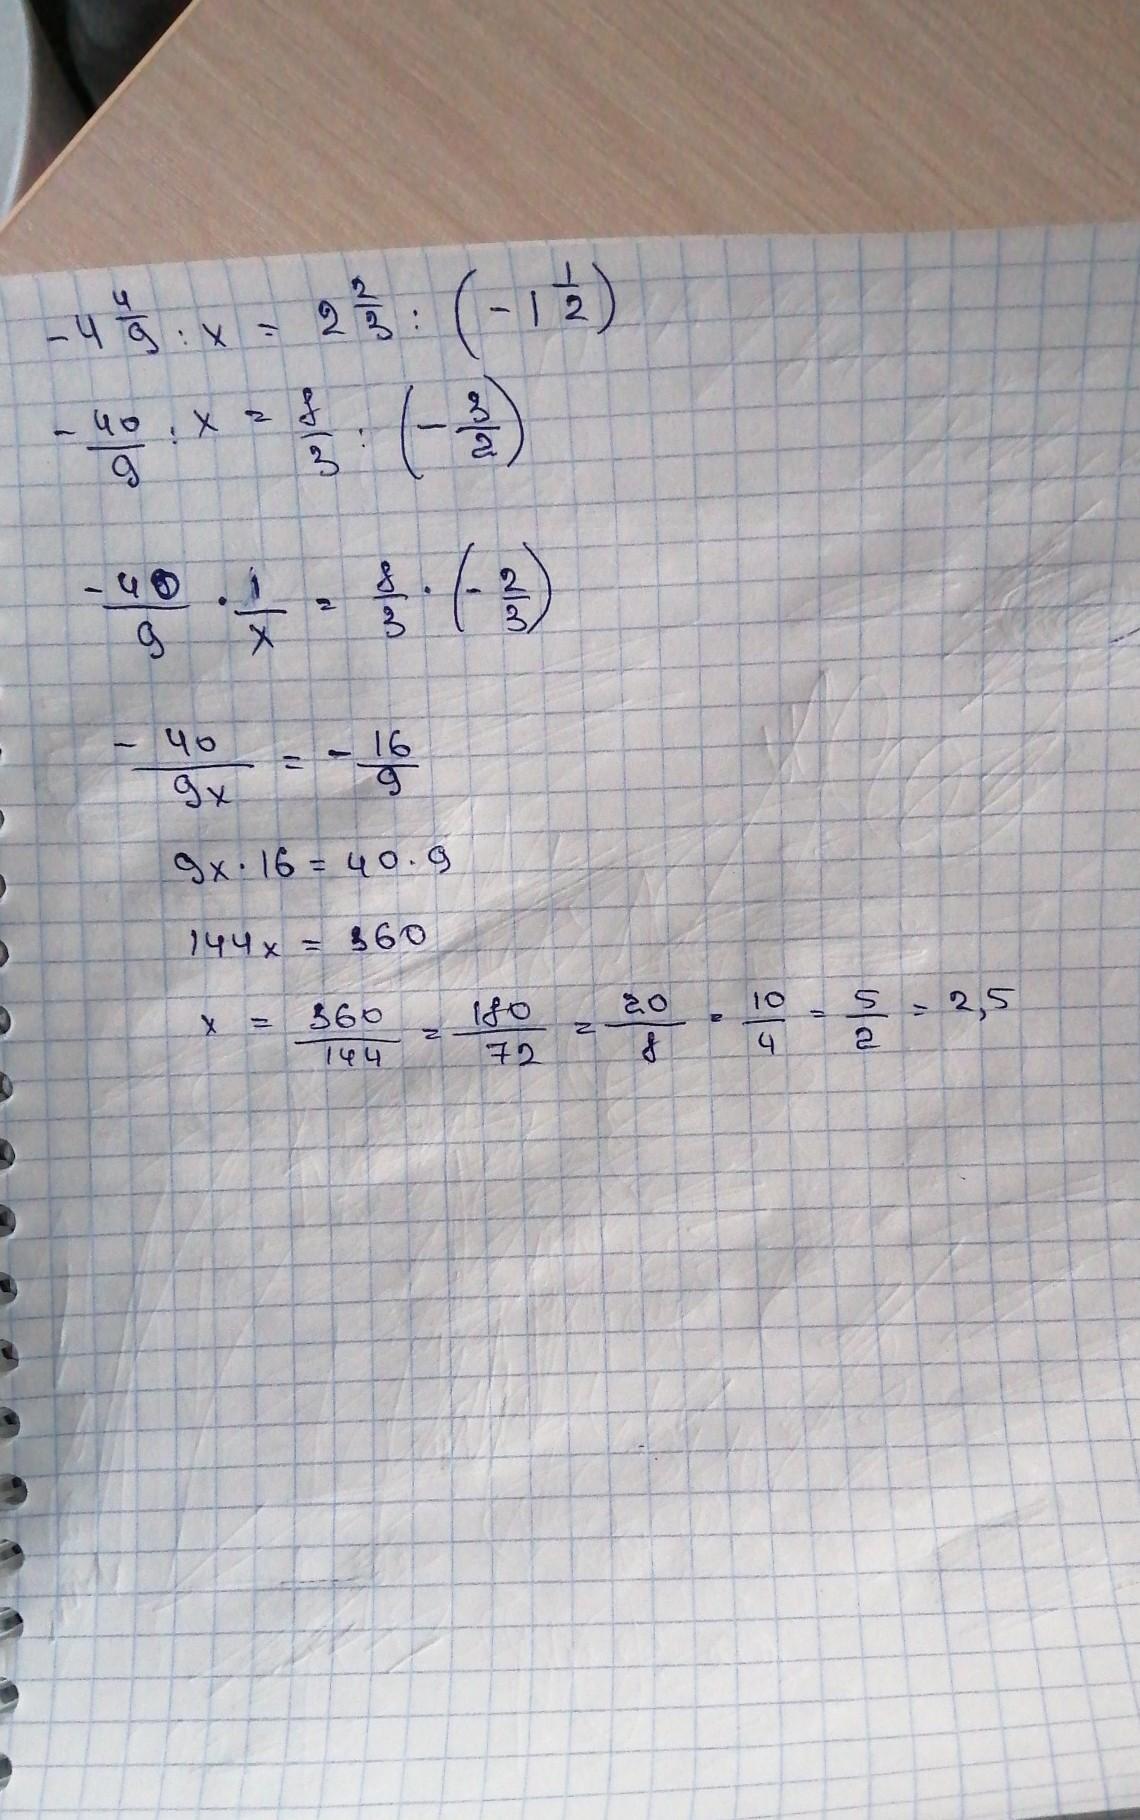 -4 4/9 : x = 2 2/3 : (-1 1/2)
- 40/9 : x = 8/3 : (- 3/2)
- 40/9 · 1/x = 8/3 · (- 2/3)
- 40/9x = - 16/9
9x · 16 = 40 · 9
144x = 360
x = 360/144 = 180/72 = 20/8 = 10/4 = 5/2 = 2,5